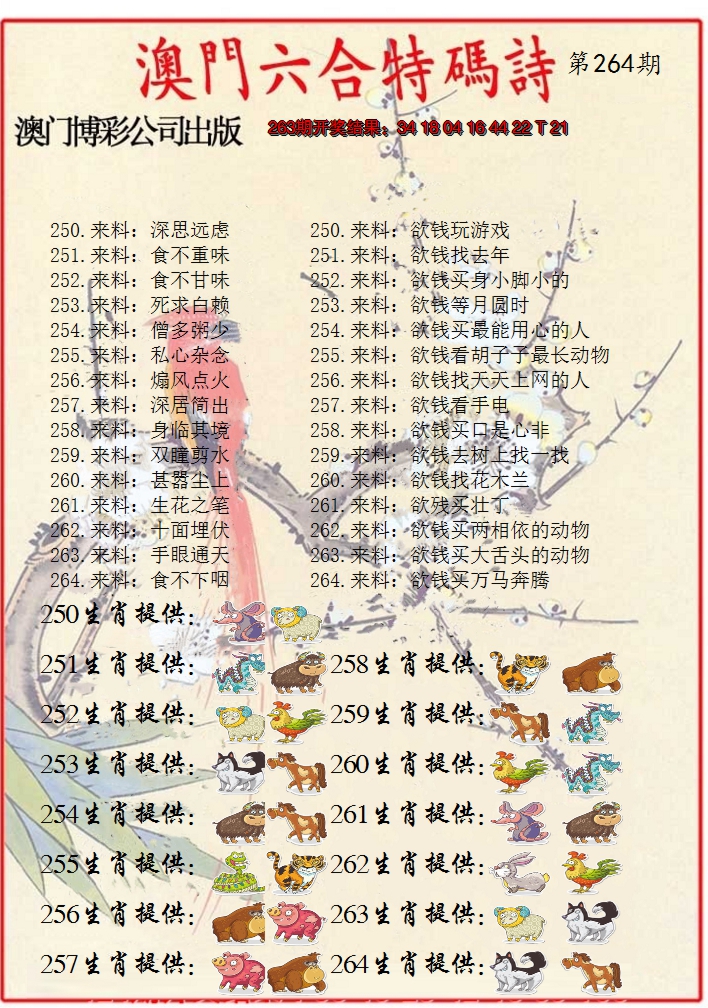 澳門六合特碼詩 第264期
澳门博彩公司出版 263期开奖结果：34 18 04 16 44 22 T 21
250.来料：深思远虑 250.来料：欲钱玩游戏
251.来料：食不重味 251.来料：欲钱找去年
252.来料：食不甘味 252.来料：欲钱买身小脚小的
253.来料：死求白赖 253.来料：欲钱等月圆时
254.来料：僧多粥少 254.来料：欲钱买最能用心的人
255.来料：私心杂念 255.来料：欲钱看胡子予最长动物
256.来料：煽风点火 256.来料：欲钱找天天上网的人
257.来料：深居简出 257.来料：欲钱看手电
258.来料：身临其境 258.来料：欲钱买口是心非
259.来料：双瞳剪水 259.来料：欲钱去树上找一找
260.来料：甚嚣尘上 260.来料：欲钱找花木兰
261.来料：生花之笔 261.来料：欲残买壮丁
262.来料：十面埋伏 262.来料：欲钱买两相依的动物
263.来料：手眼通天 263.来料：欲钱买大舌头的动物
264.来料：食不下咽 264.来料：欲钱买万马奔腾
250生肖提供：
251生肖提供： 258生肖提供：
252生肖提供： 259生肖提供：
253生肖提供： 260生肖提供：
254生肖提供： 261生肖提供：
255生肖提供： 262生肖提供：
256生肖提供： 263生肖提供：
257生肖提供： 264生肖提供：